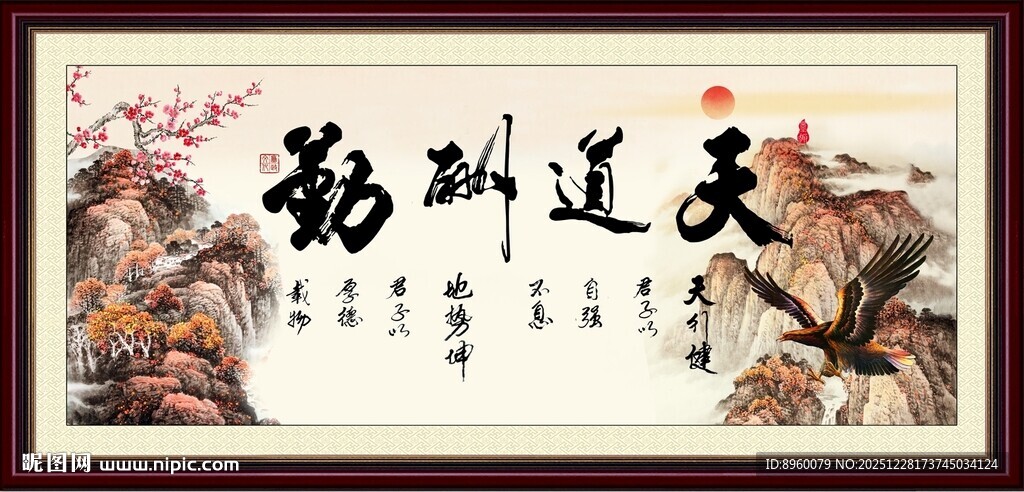 天道酬勤
天行健
君子以
自强
不息
地势坤
君子以
厚德
载物
昵图网 www.nipic.com
ID:8960079 NO:20251228173745034124